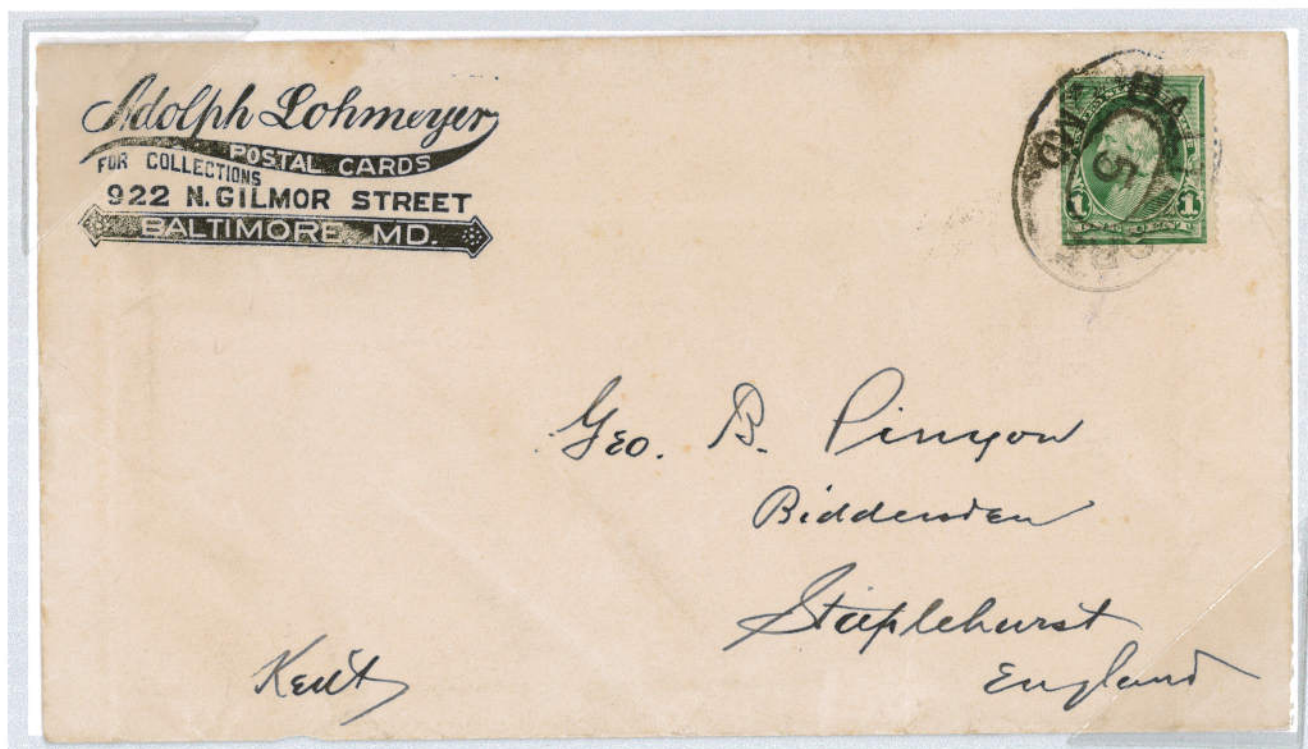 Adolph Lohmeyer
POSTAL CARDS
FOR COLLECTIONS
922 N. GILMOR STREET
BALTIMORE MD.
5
1 1
Geo. B. Pinyon
Biddenden
Staplehurst
England
Kent